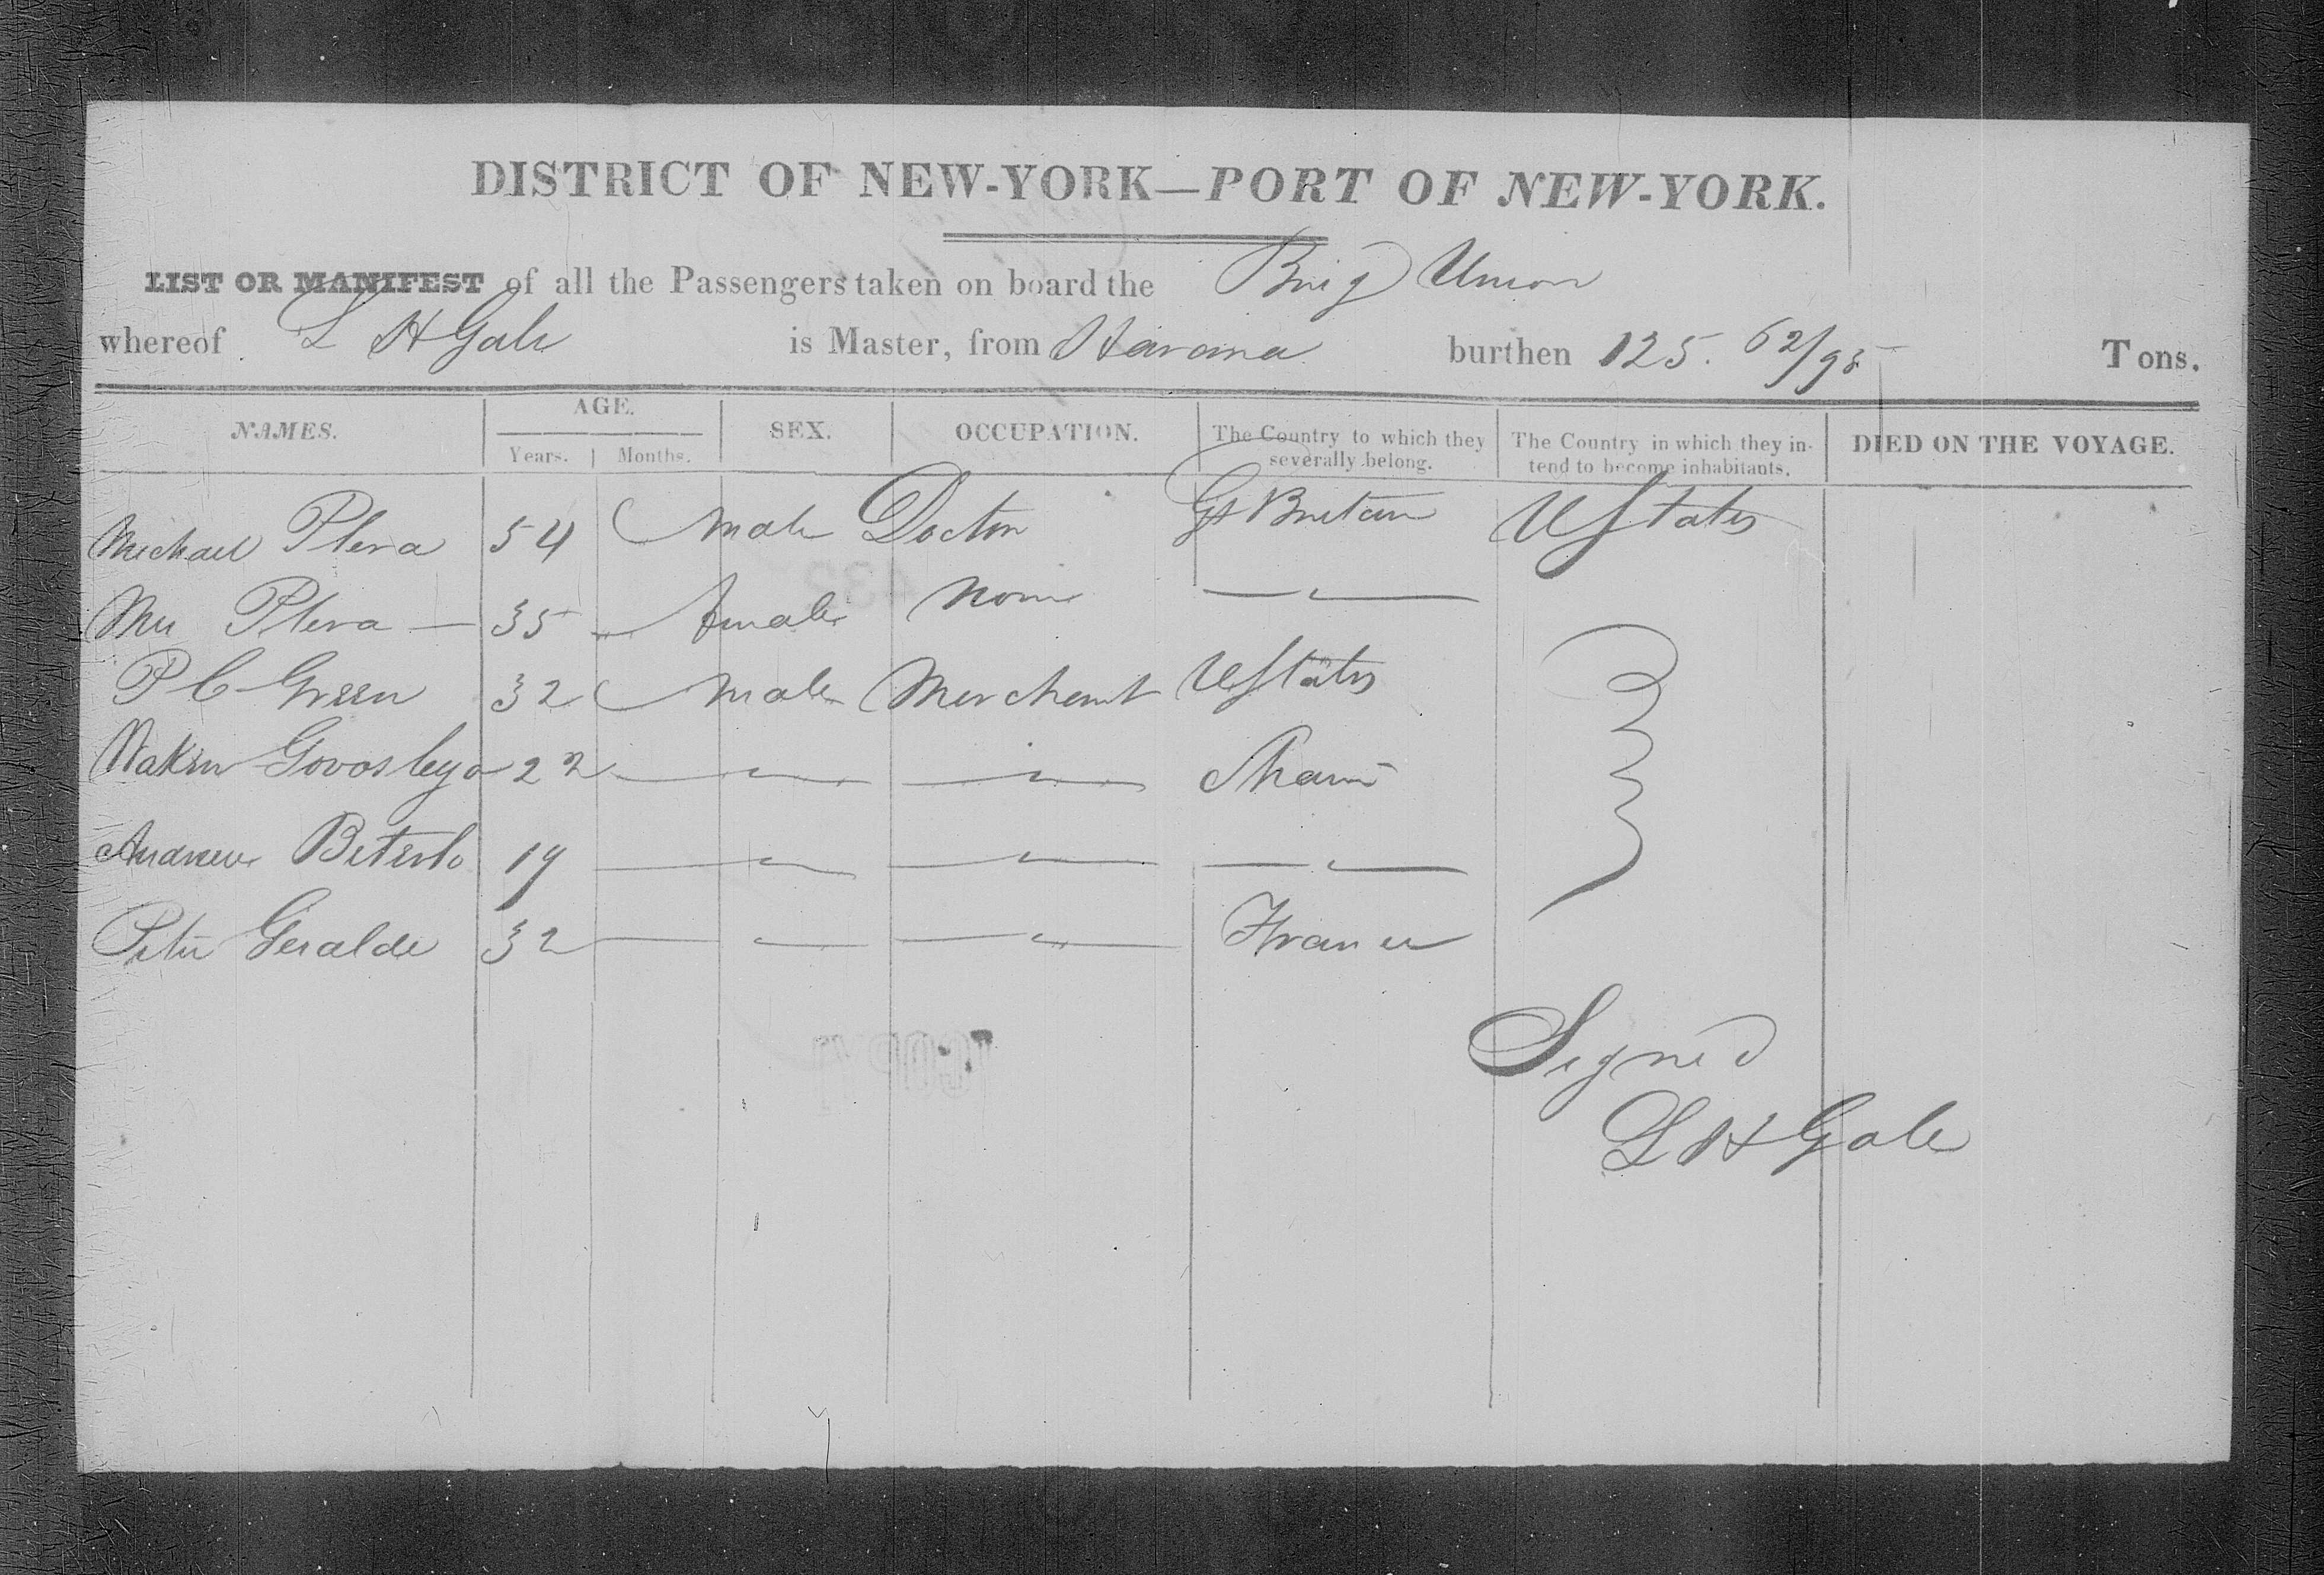 DISTRICT OF NEW-YORK—PORT OF NEW-YORK.
LIST OR MANIFEST of all the Passengers taken on board the Brig Union
whereof L H Gale is Master, from Havana burthen 125. 62/95 Tons.
NAMES. AGE. Years. Months. SEX. OCCUPATION. The Country to which they severally belong. The Country in which they intend to become inhabitants. DIED ON THE VOYAGE.
Michael Pleva 54 Male Doctor Gt Britain U States
Mrs Pleva — 35 " female None — " —
P C Green 32 Male Merchant U States
22 — " — — " —
Andrew 19 — " — — " — — " —
Peter Geralde 32 — " — — " — France
Signed
L H Gale
COPY